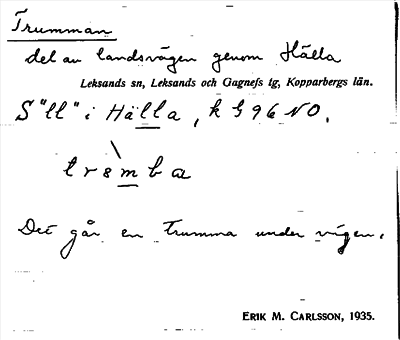 Trumman
del av landsvägen genom Hälla
Leksands sn, Leksands och Gagnefs tg, Kopparbergs län.
S "ll" i Hälla, k G 96 NO.
Det går en trumma under vägen.
ERIK M. CARLSSON, 1935.